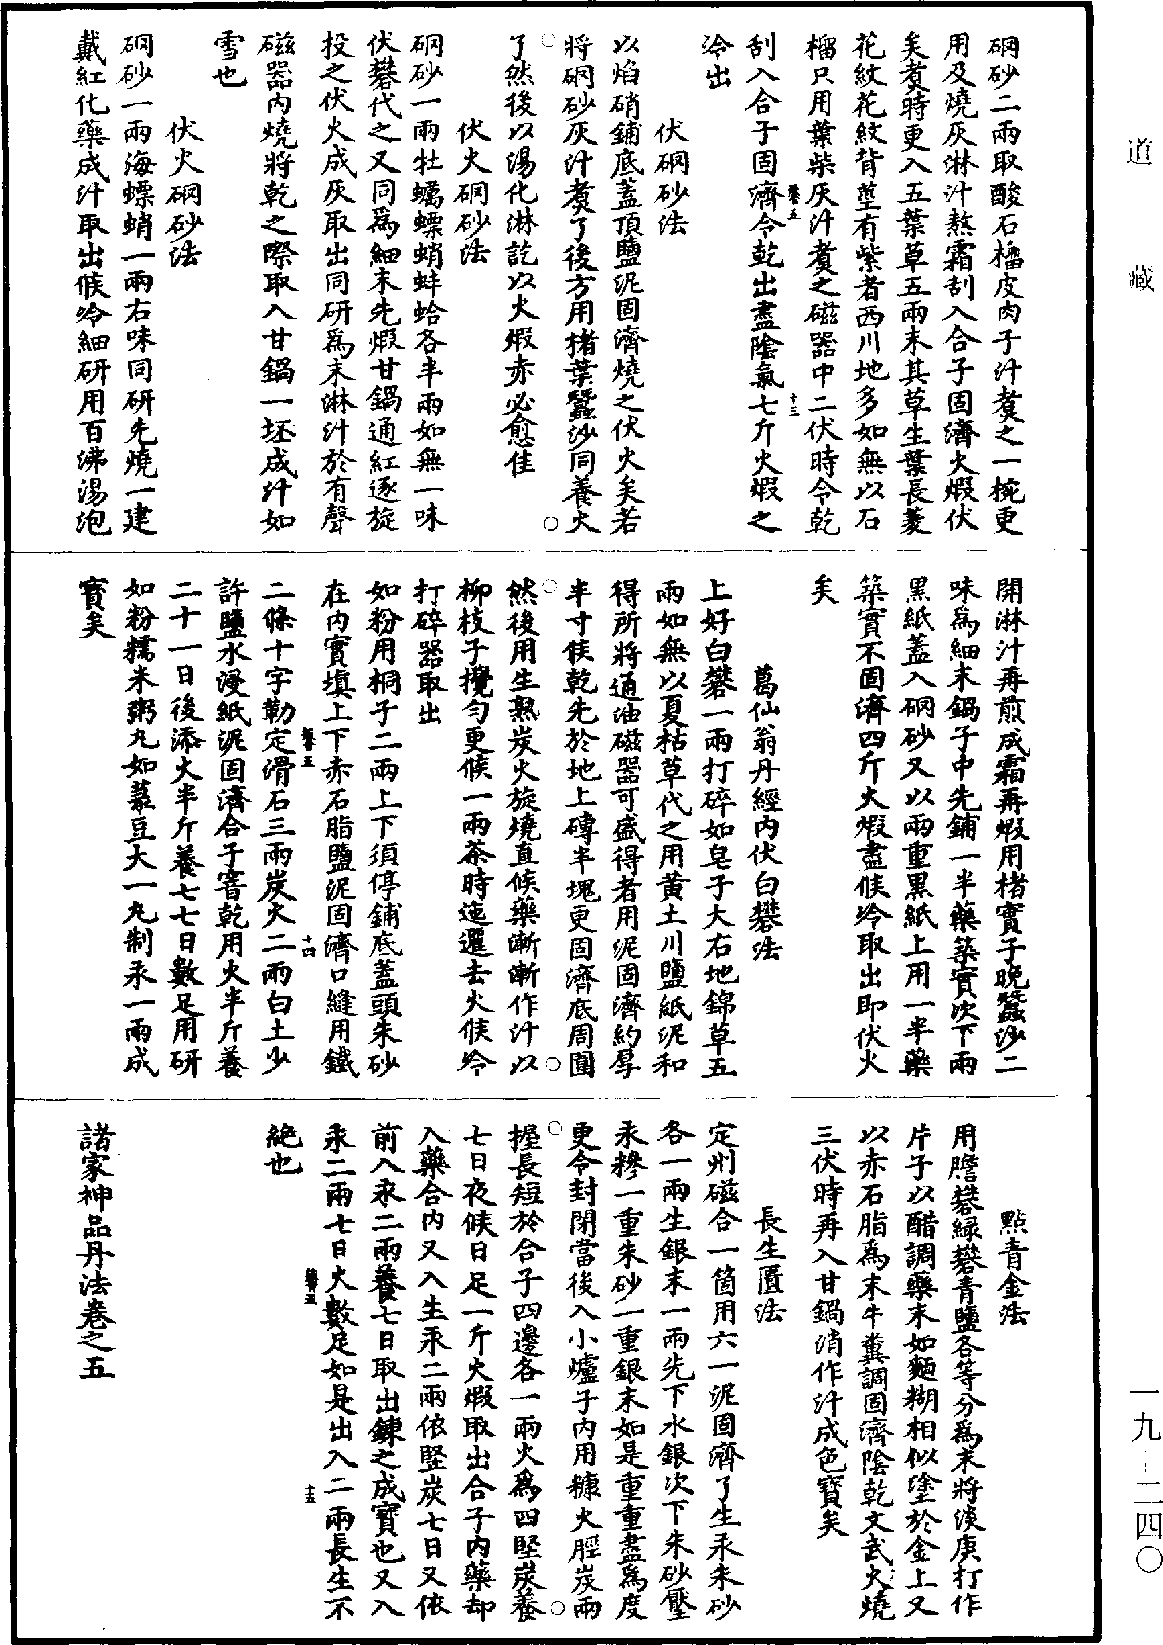 道藏
硇砂二兩取酸石榴皮肉子汁煑之一椀更
用及燒灰淋汁熬霜刮入合子固濟火煆伏
矣煑時更入五葉草五兩末其草生葉長菱
花紋花紋背莖有紫者西川地多如無以石
榴只用葉柴灰汁煑之磁器中二伏時令乾
刮入合子固濟令乾出盡陰氣七斤火煆之
冷出
伏硇砂法
以焰硝鋪底蓋頂鹽泥固濟燒之伏火矣若
將硇砂灰汁煑了後方用楮葉蠶沙同養火
了然後以湯化淋訖以火煆赤必愈佳
伏火硇砂法
硇砂一兩牡蠣螵蛸蚌蛤各半兩如無一味
伏礬代之又同爲細末先煆甘鍋通紅逐旋
投之伏火成灰取出同研爲末淋汁於有聲
磁器內燒將乾之際取入甘鍋一坯成汁如
雪也
伏火硇砂法
硇砂一兩海螵蛸一兩右味同研先燒一建
戴紅化藥成汁取出候冷細研用百沸湯泡
開淋汁再煎成霜再煆用楮實子晚蠶沙二
味爲細末鍋子中先鋪一半藥築實次下兩
黑紙蓋入硇砂又以兩重黑紙上用一半藥
築實不固濟四斤火煆盡候冷取出即伏火
矣
葛仙翁丹經內伏白礬法
上好白礬一兩打碎如皂子大右地錦草五
兩如無以夏枯草代之用黃土川鹽紙泥和
得所將通油磁器可盛得者用泥固濟約厚
半寸候乾先於地上磚半塊更固濟底周圍
然後用生熟炭火旋燒直候藥漸漸作汁以
柳枝子攪勻更候一兩茶時迤邐去火候冷
打碎器取出
如粉用桐子二兩上下須停鋪底蓋頭朱砂
在內實塡上下赤石脂鹽泥固濟口縫用鐵
二條十字勒定滑石三兩炭火二兩白土少
許鹽水浸紙泥固濟合子窨乾用火半斤養
二十一日後添火半斤養七七日數足用研
如粉糯米粥丸如菉豆大一丸制汞一兩成
寶矣
點青金法
用膽礬綠礬青鹽各等分爲末將淡庚打作
片子以醋調藥末如麵糊相似塗於金上又
以赤石脂爲末牛糞調固濟陰乾文武火燒
三伏時再入甘鍋消作汁成色寶矣
長生匱法
定州磁合一箇用六一泥固濟了生汞朱砂
各一兩生銀末一兩先下水銀次下朱砂壓
汞糝一重朱砂一重銀末如是重重盡爲度
更令封閉當後入小爐子內用糠火脛炭兩
握長短於合子四邊各一兩火爲四堅炭養
七日夜候日足一斤火煆取出合子內藥却
入藥合內又入生汞二兩依堅炭七日又依
前入汞二兩養七日取出鍊之成寶也又入
汞二兩七日火數足如是出入二兩長生不
絶也
諸家神品丹法卷之五
一九-二四〇